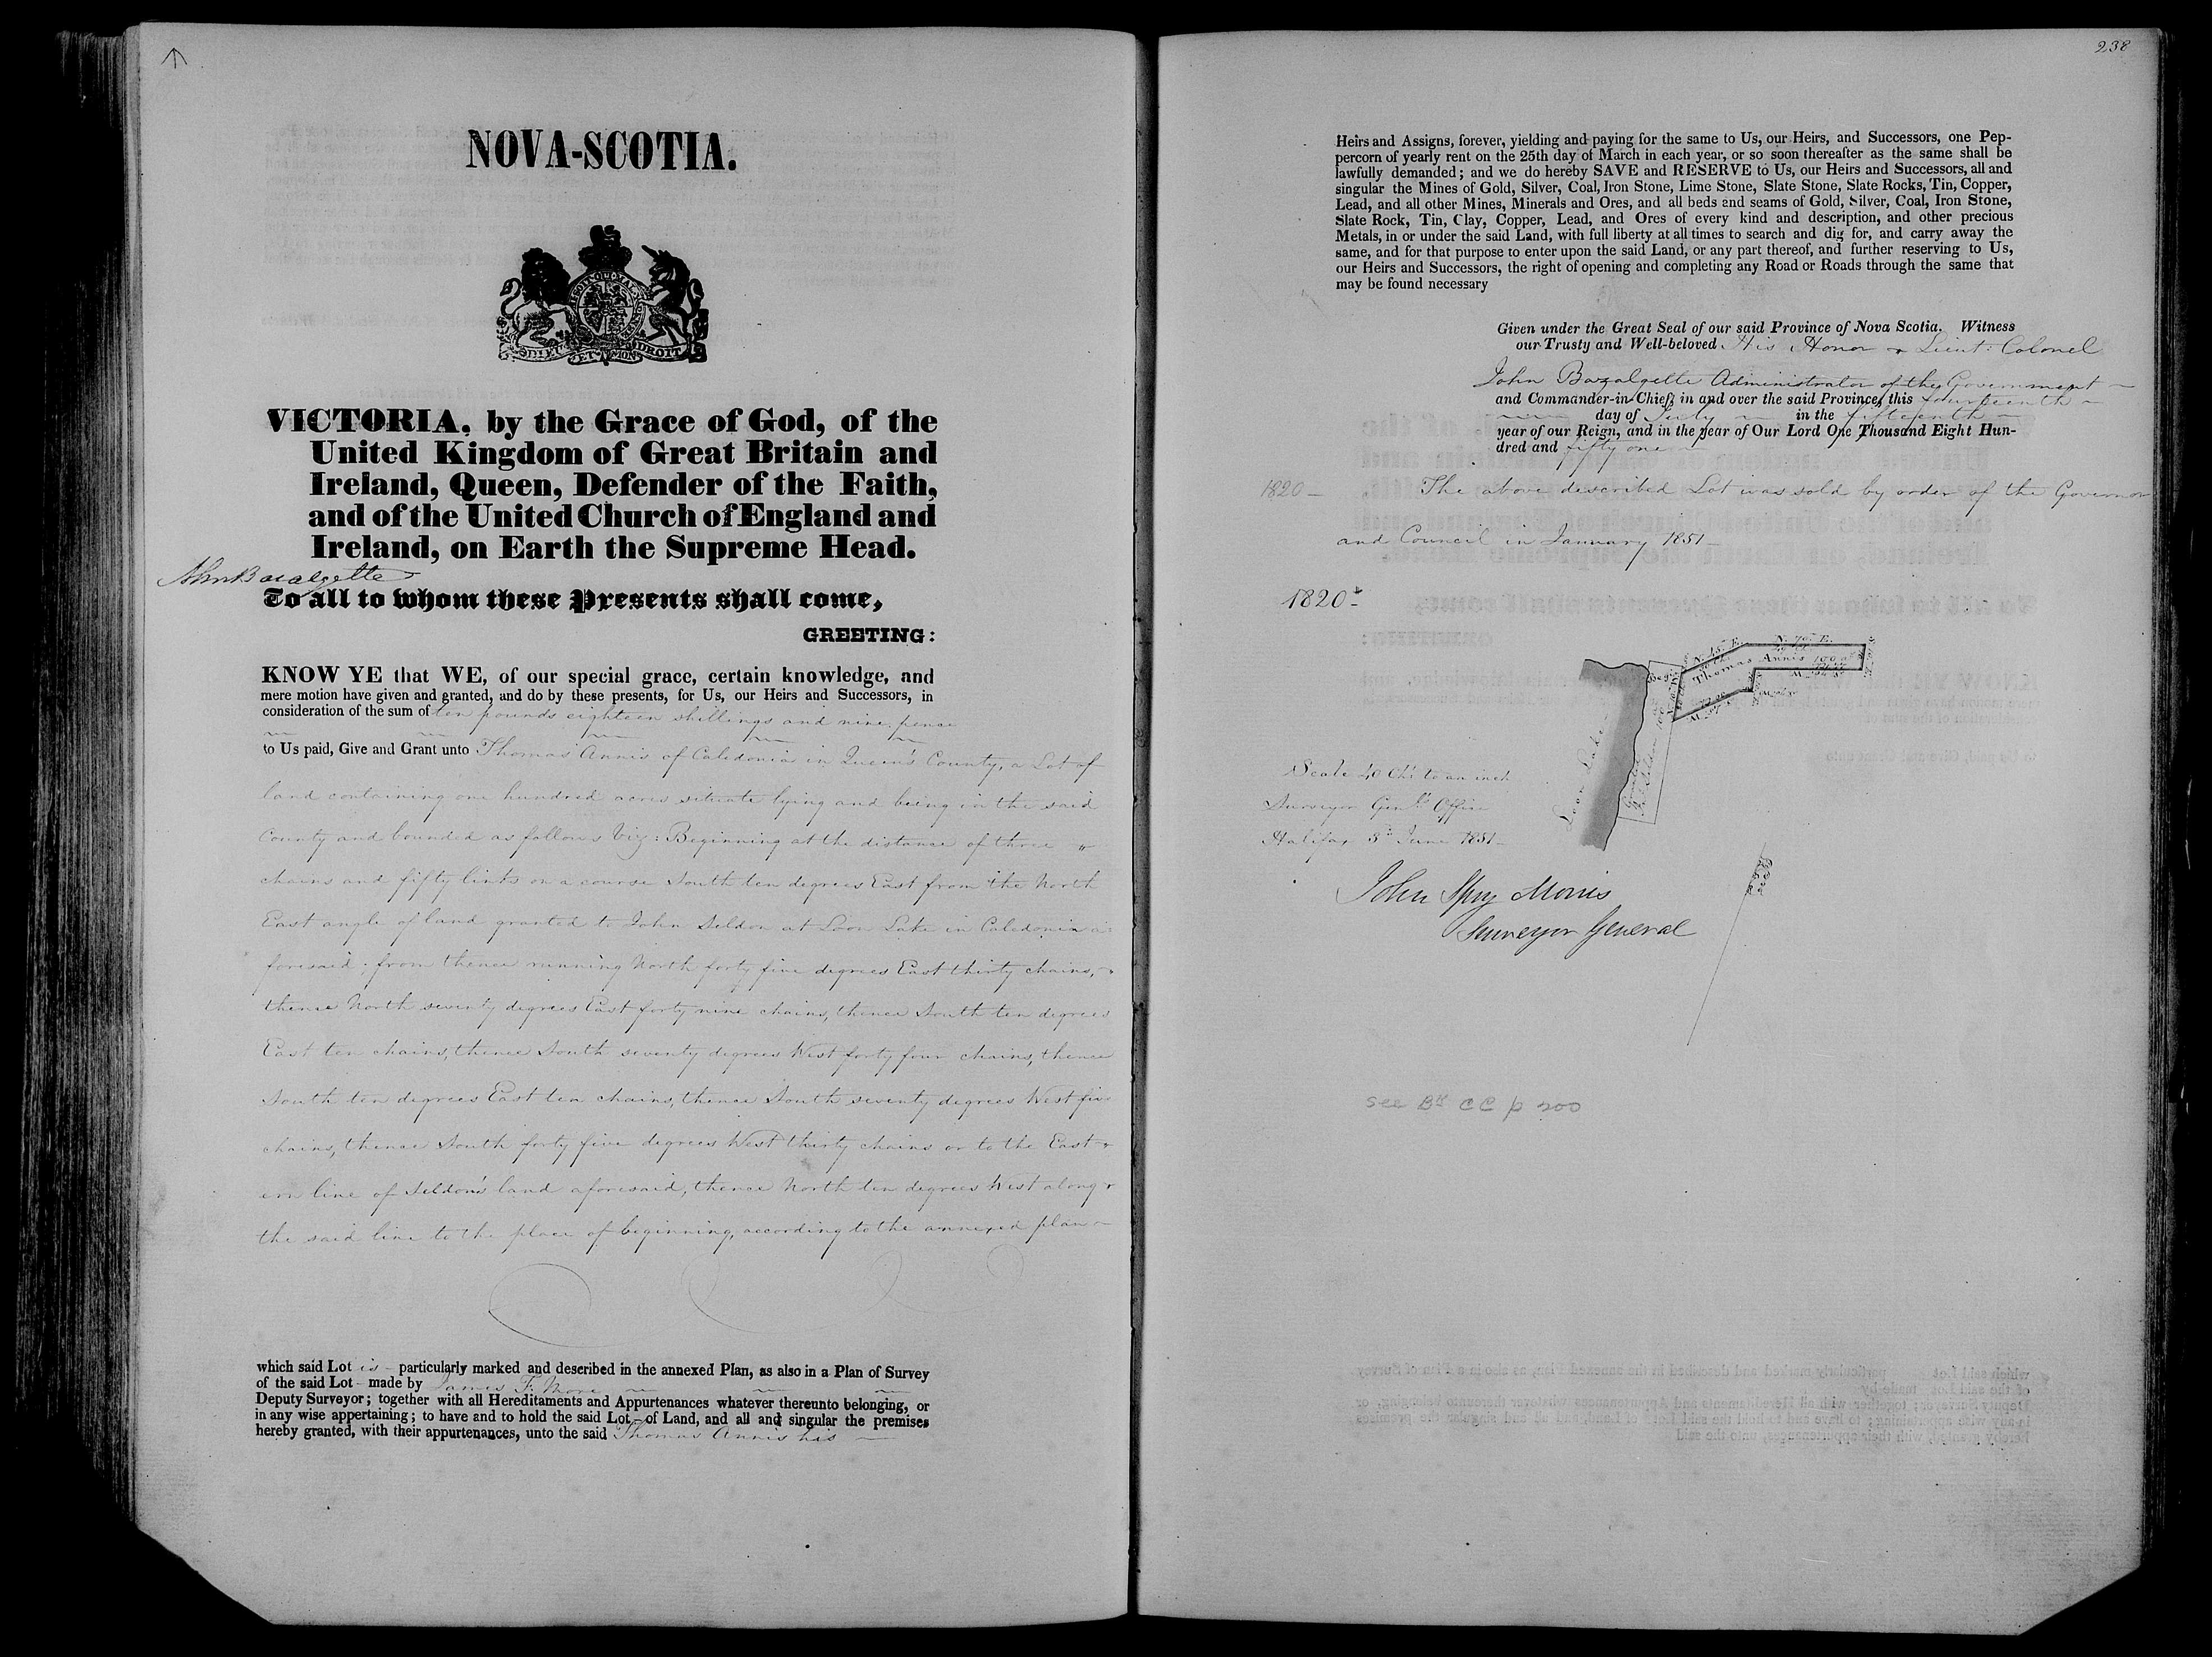 NOVA-SCOTIA.
DIEU ET MON DROIT
VICTORIA, by the Grace of God, of the
United Kingdom of Great Britain and
Ireland, Queen, Defender of the Faith,
and of the United Church of England and
Ireland, on Earth the Supreme Head.
John Bazalgette
To all to whom these Presents shall come,
GREETING:
KNOW YE that WE, of our special grace, certain knowledge, and
mere motion have given and granted, and do by these presents, for Us, our Heirs and Successors, in
consideration of the sum of ten pounds eighteen shillings and nine pence
to Us paid, Give and Grant unto Thomas Annis of Caledonia in Queen's County, a Lot of
land containing one hundred acres situate lying and being in the said
County and bounded as follows Viz: Beginning at the distance of three
chains and fifty links on a course South ten degrees East from the North
East angle of land granted to John Seldon at Loon Lake in Caledonia a-
foresaid; from thence running North forty five degrees East thirty chains,
thence North seventy degrees East forty nine chains, thence South ten degrees
East ten chains, thence South seventy degrees West forty four chains, thence
South ten degrees East ten chains, thence South seventy degrees West five
chains, thence South forty five degrees West thirty chains or to the East
ern line of Seldon's land aforesaid, thence North ten degrees West along
the said line to the place of beginning, according to the annexed plan
which said Lot is particularly marked and described in the annexed Plan, as also in a Plan of Survey
of the said Lot made by James F. More
Deputy Surveyor; together with all Hereditaments and Appurtenances whatever thereunto belonging, or
in any wise appertaining; to have and to hold the said Lot of Land, and all and singular the premises
hereby granted, with their appurtenances, unto the said Thomas Annis his
238
Heirs and Assigns, forever, yielding and paying for the same to Us, our Heirs, and Successors, one Pep-
percorn of yearly rent on the 25th day of March in each year, or so soon thereafter as the same shall be
lawfully demanded; and we do hereby SAVE and RESERVE to Us, our Heirs and Successors, all and
singular the Mines of Gold, Silver, Coal, Iron Stone, Lime Stone, Slate Stone, Slate Rocks, Tin, Copper,
Lead, and all other Mines, Minerals and Ores, and all beds and seams of Gold, Silver, Coal, Iron Stone,
Slate Rock, Tin, Clay, Copper, Lead, and Ores of every kind and description, and other precious
Metals, in or under the said Land, with full liberty at all times to search and dig for, and carry away the
same, and for that purpose to enter upon the said Land, or any part thereof, and further reserving to Us,
our Heirs and Successors, the right of opening and completing any Road or Roads through the same that
may be found necessary
Given under the Great Seal of our said Province of Nova Scotia. Witness
our Trusty and Well-beloved His Honor Lieut: Colonel
John Bazalgette Administrator of the Government
and Commander-in-Chief, in and over the said Province, this fourteenth
day of July in the fifteenth
year of our Reign, and in the year of Our Lord One Thousand Eight Hun-
dred and fifty one
1820 The above described Lot was sold by order of the Governor
and Council in January 1851
1820
N. 45° E.
N. 70° E.
Thomas Annis 100
Loon Lake
Scale 40 Chs to an inch
Surveyor Genls Office
Halifax 3d June 1851
John Spry Morris
Surveyor General
see Bk CC p 200